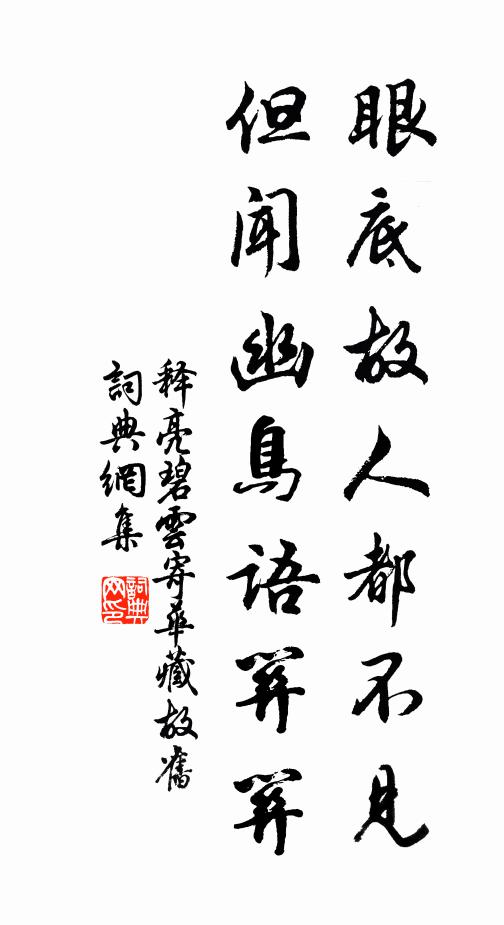 眼底故人都不見
但聞幽鳥語關關
释亮碧雲寄華藏故舊
詞典網集
詞典
网印